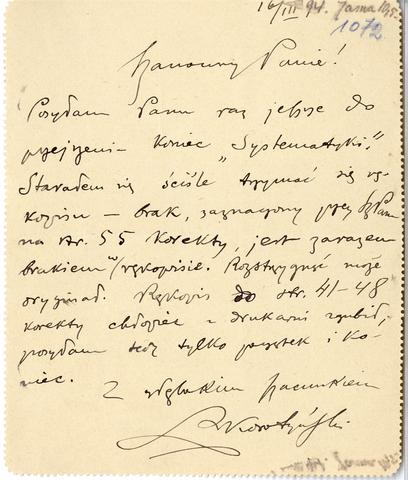 16/III 94. Jasna 10,5.
1072
Szanowny Panie!
Posyłam Panu raz jeszcze do
przejrzenia koniec „Systematyki".
Starałem się ściśle trzymać się rę-
kopisu – brak, zaznaczony przez Sz Pana
na str. 55 korekty, jest zarazem
brakiem w rękopisie. Rozstrzygnąć może
oryginał. Rękopis do str. 41–48
korekty chłopiec z drukarni zgubił,
posyłam więc tylko początek i ko-
niec.
Z głębokim szacunkiem